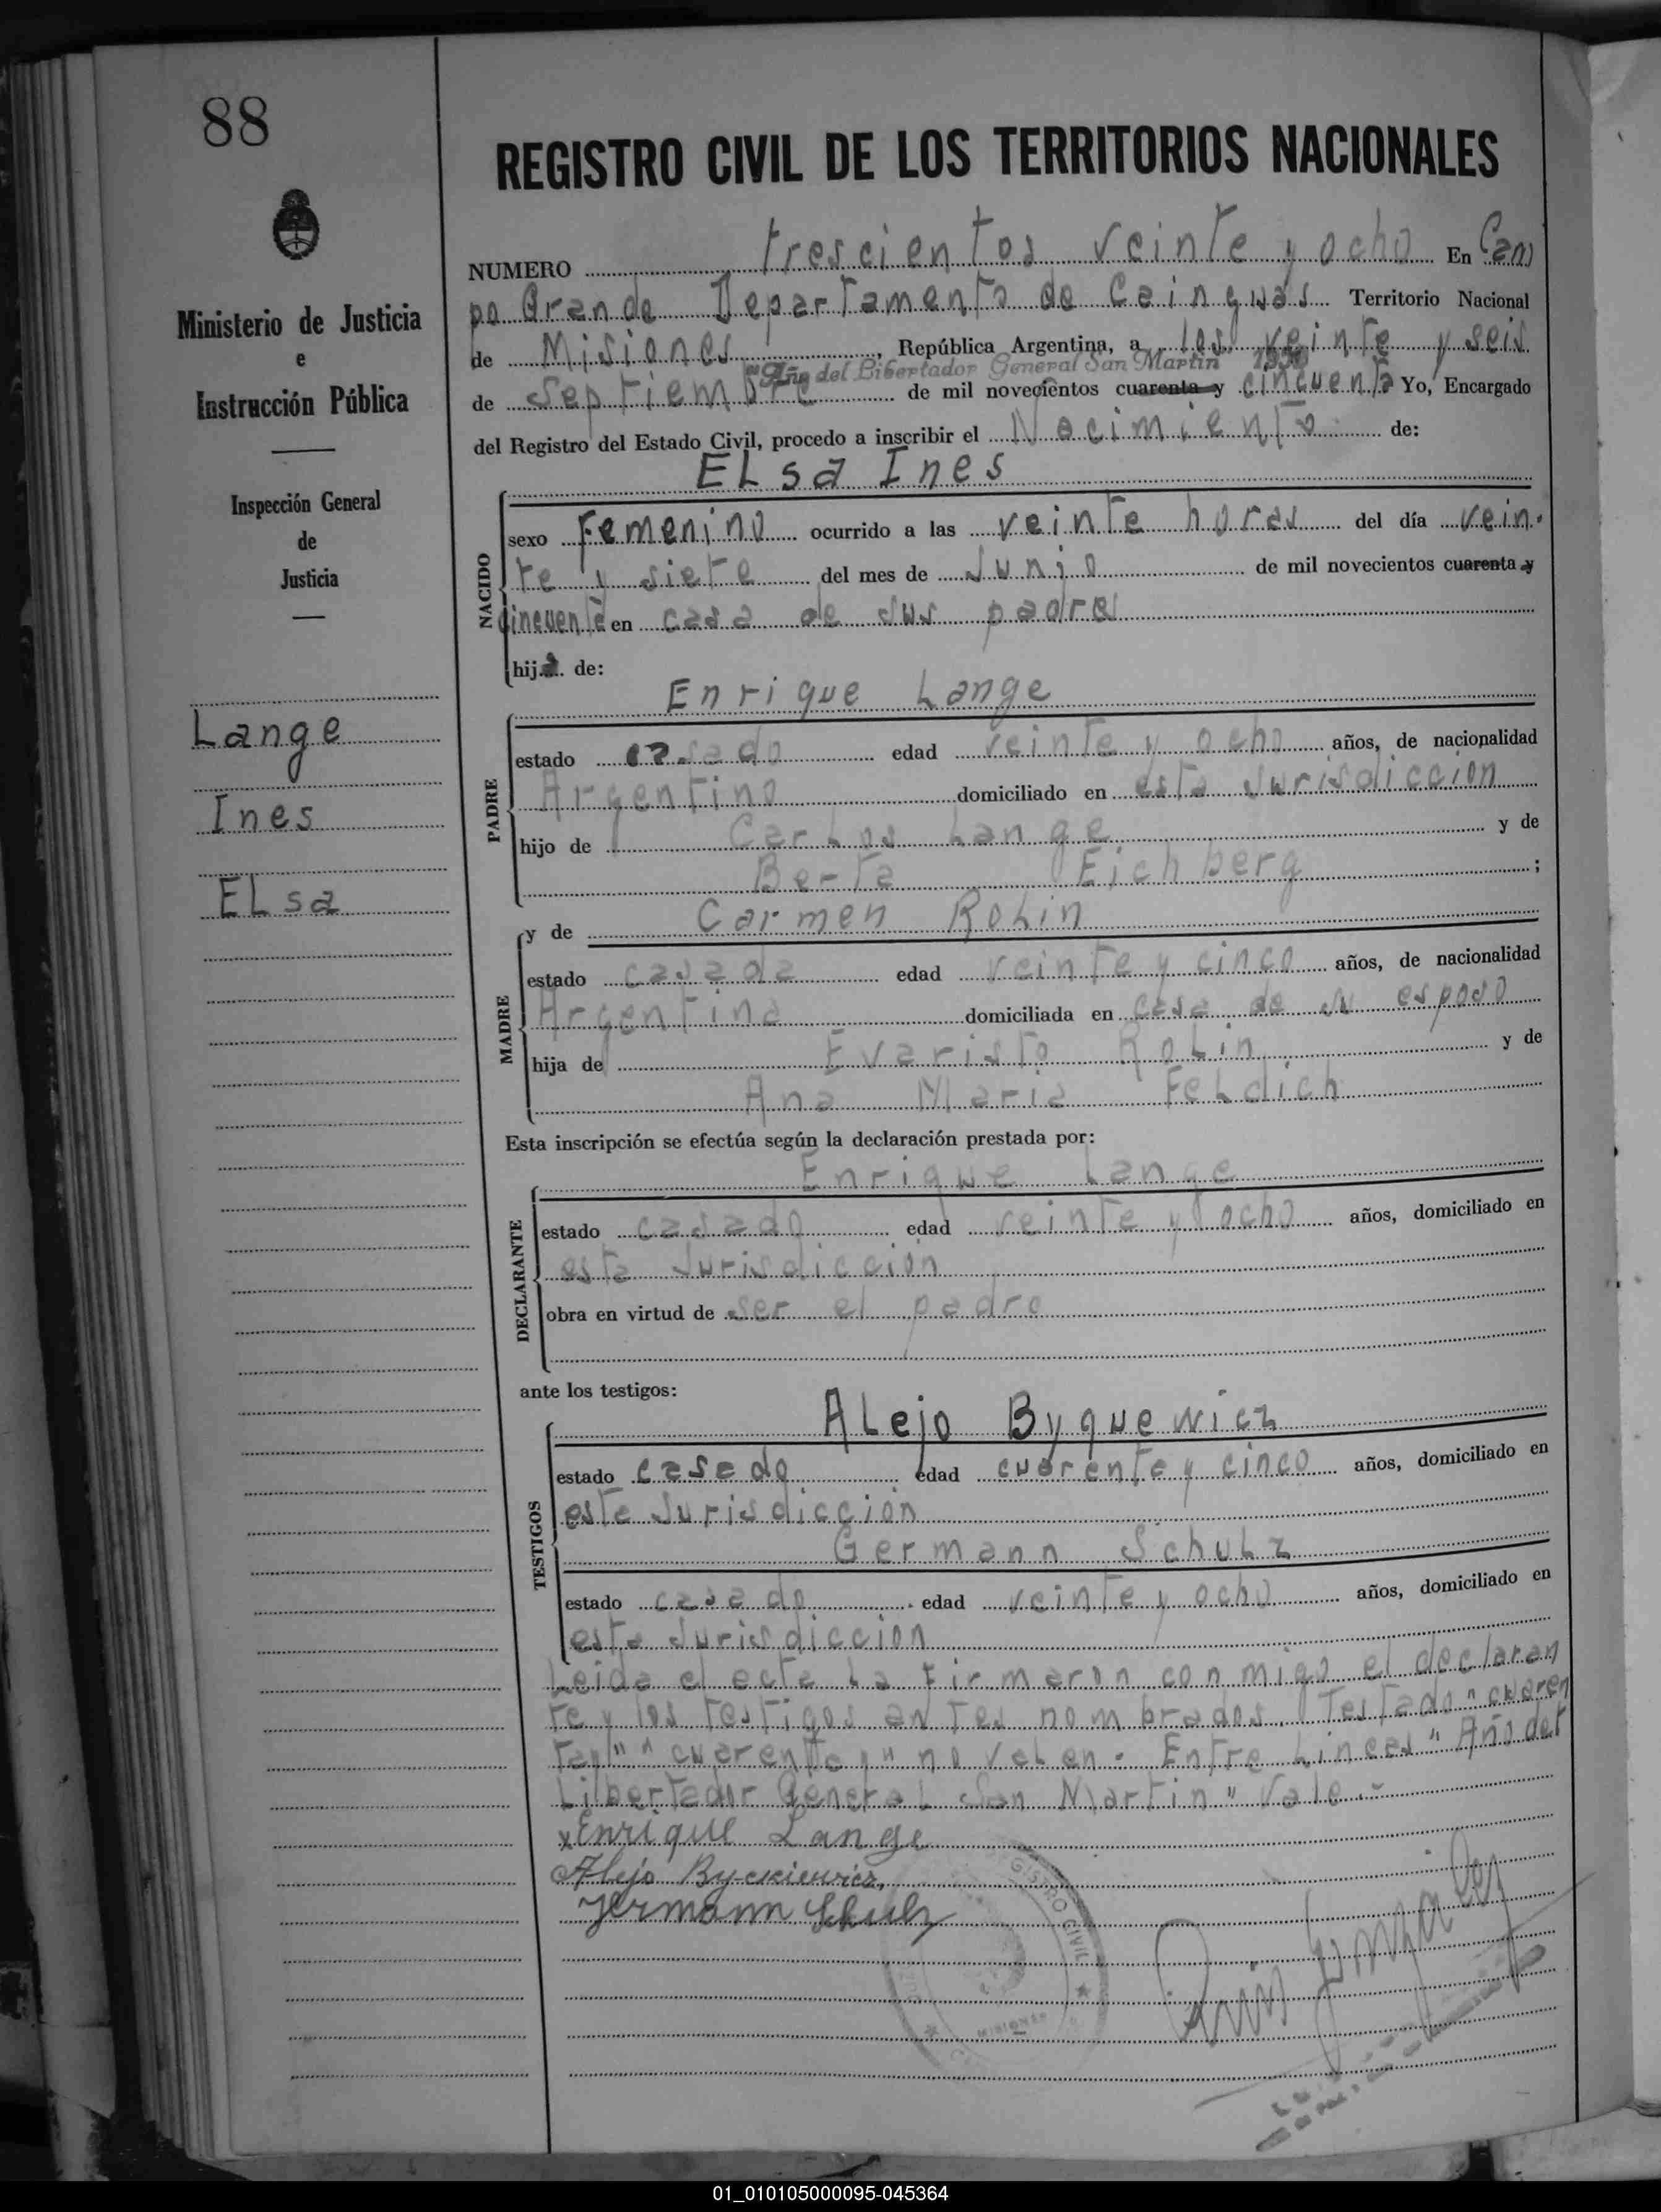 88
Ministerio de Justicia
e
Instrucción Pública
Inspección General
de
Justicia
Lange
Ines
ELsa
REGISTRO CIVIL DE LOS TERRITORIOS NACIONALES
NUMERO trescientos veinte y ocho En Cam
po Grande Departamento de Cainguás Territorio Nacional
de Misiones, República Argentina, a los veinte y seis
"Año del Libertador General San Martín" 1950
de septiembre de mil novecientos cuarenta y cincuenta Yo, Encargado
del Registro del Estado Civil, procedo a inscribir el Nacimiento de:
ELsa Ines
NACIDO
sexo Femenino ocurrido a las veinte horas del día vein-
te y siete del mes de Junio de mil novecientos cuarenta y
cincuenta en casa de sus padres
hija de:
Enrique Lange
PADRE
estado casado edad veinte y ocho años, de nacionalidad
Argentino domiciliado en esta Jurisdiccion
hijo de Carlos Lange y de
Berta Eichberg;
MADRE
y de Carmen RoLin
estado casada edad veinte y cinco años, de nacionalidad
Argentina domiciliada en casa de su esposo
hija de Evaristo RoLin y de
Ana Maria FeLdich
Esta inscripción se efectúa según la declaración prestada por:
Enrique Lange
DECLARANTE
estado casado edad veinte y ocho años, domiciliado en
esta Jurisdicción
obra en virtud de ser el padre
ante los testigos:
TESTIGOS
ALejo Byquewicz
estado casado edad cuarenta y cinco años, domiciliado en
esta Jurisdicción
Germann SchuLz
estado casado edad veinte y ocho años, domiciliado en
esta Jurisdiccion
Leida el acta La firmaron conmigo el declaran
te y los testigos antes nombrados. Testado "cuaren
ta y" "cuarenta y" no vaLen. Entre Lineas "Año del
Libertador General San Martin" Vale.-
x Enrique Lange
Alejo Byckiewicz,
Hermann Schulz
GISTRO CIVIL
MISIONES
01_010105000095-045364